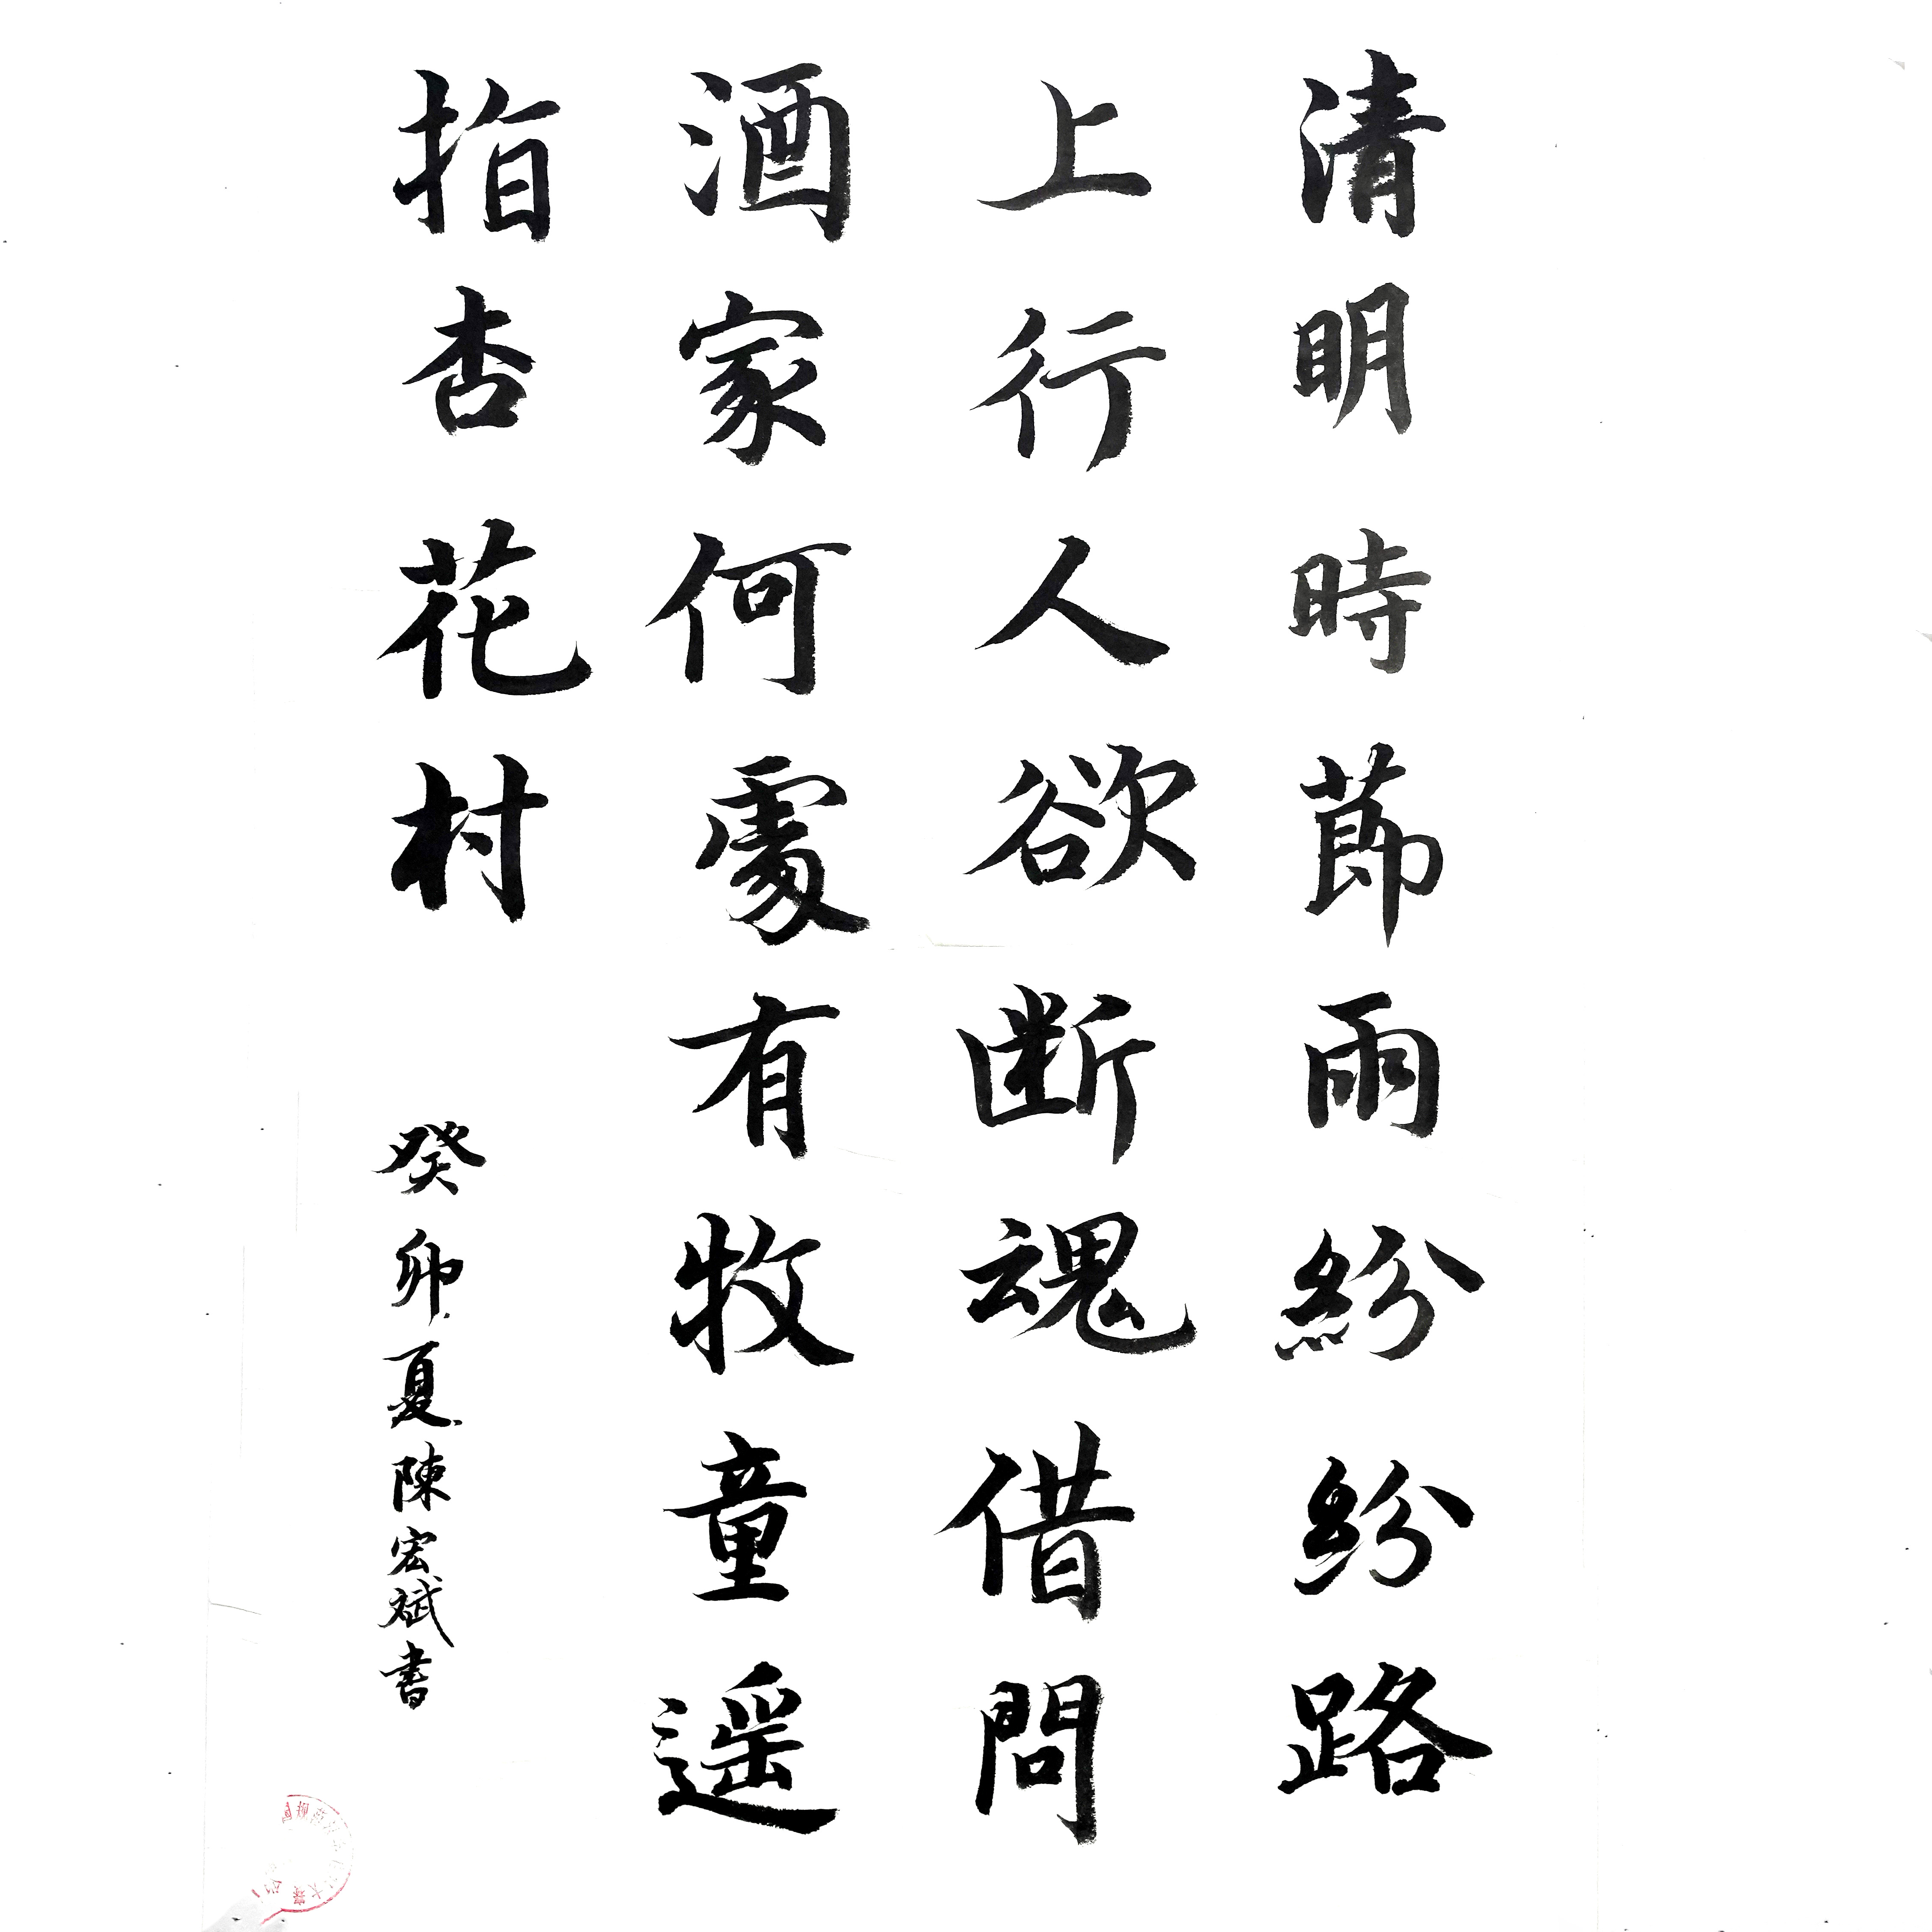 清明時節雨紛紛路
上行人欲断魂借問
酒家何處有牧童遥
指杏花村
癸卯夏陳宏斌書